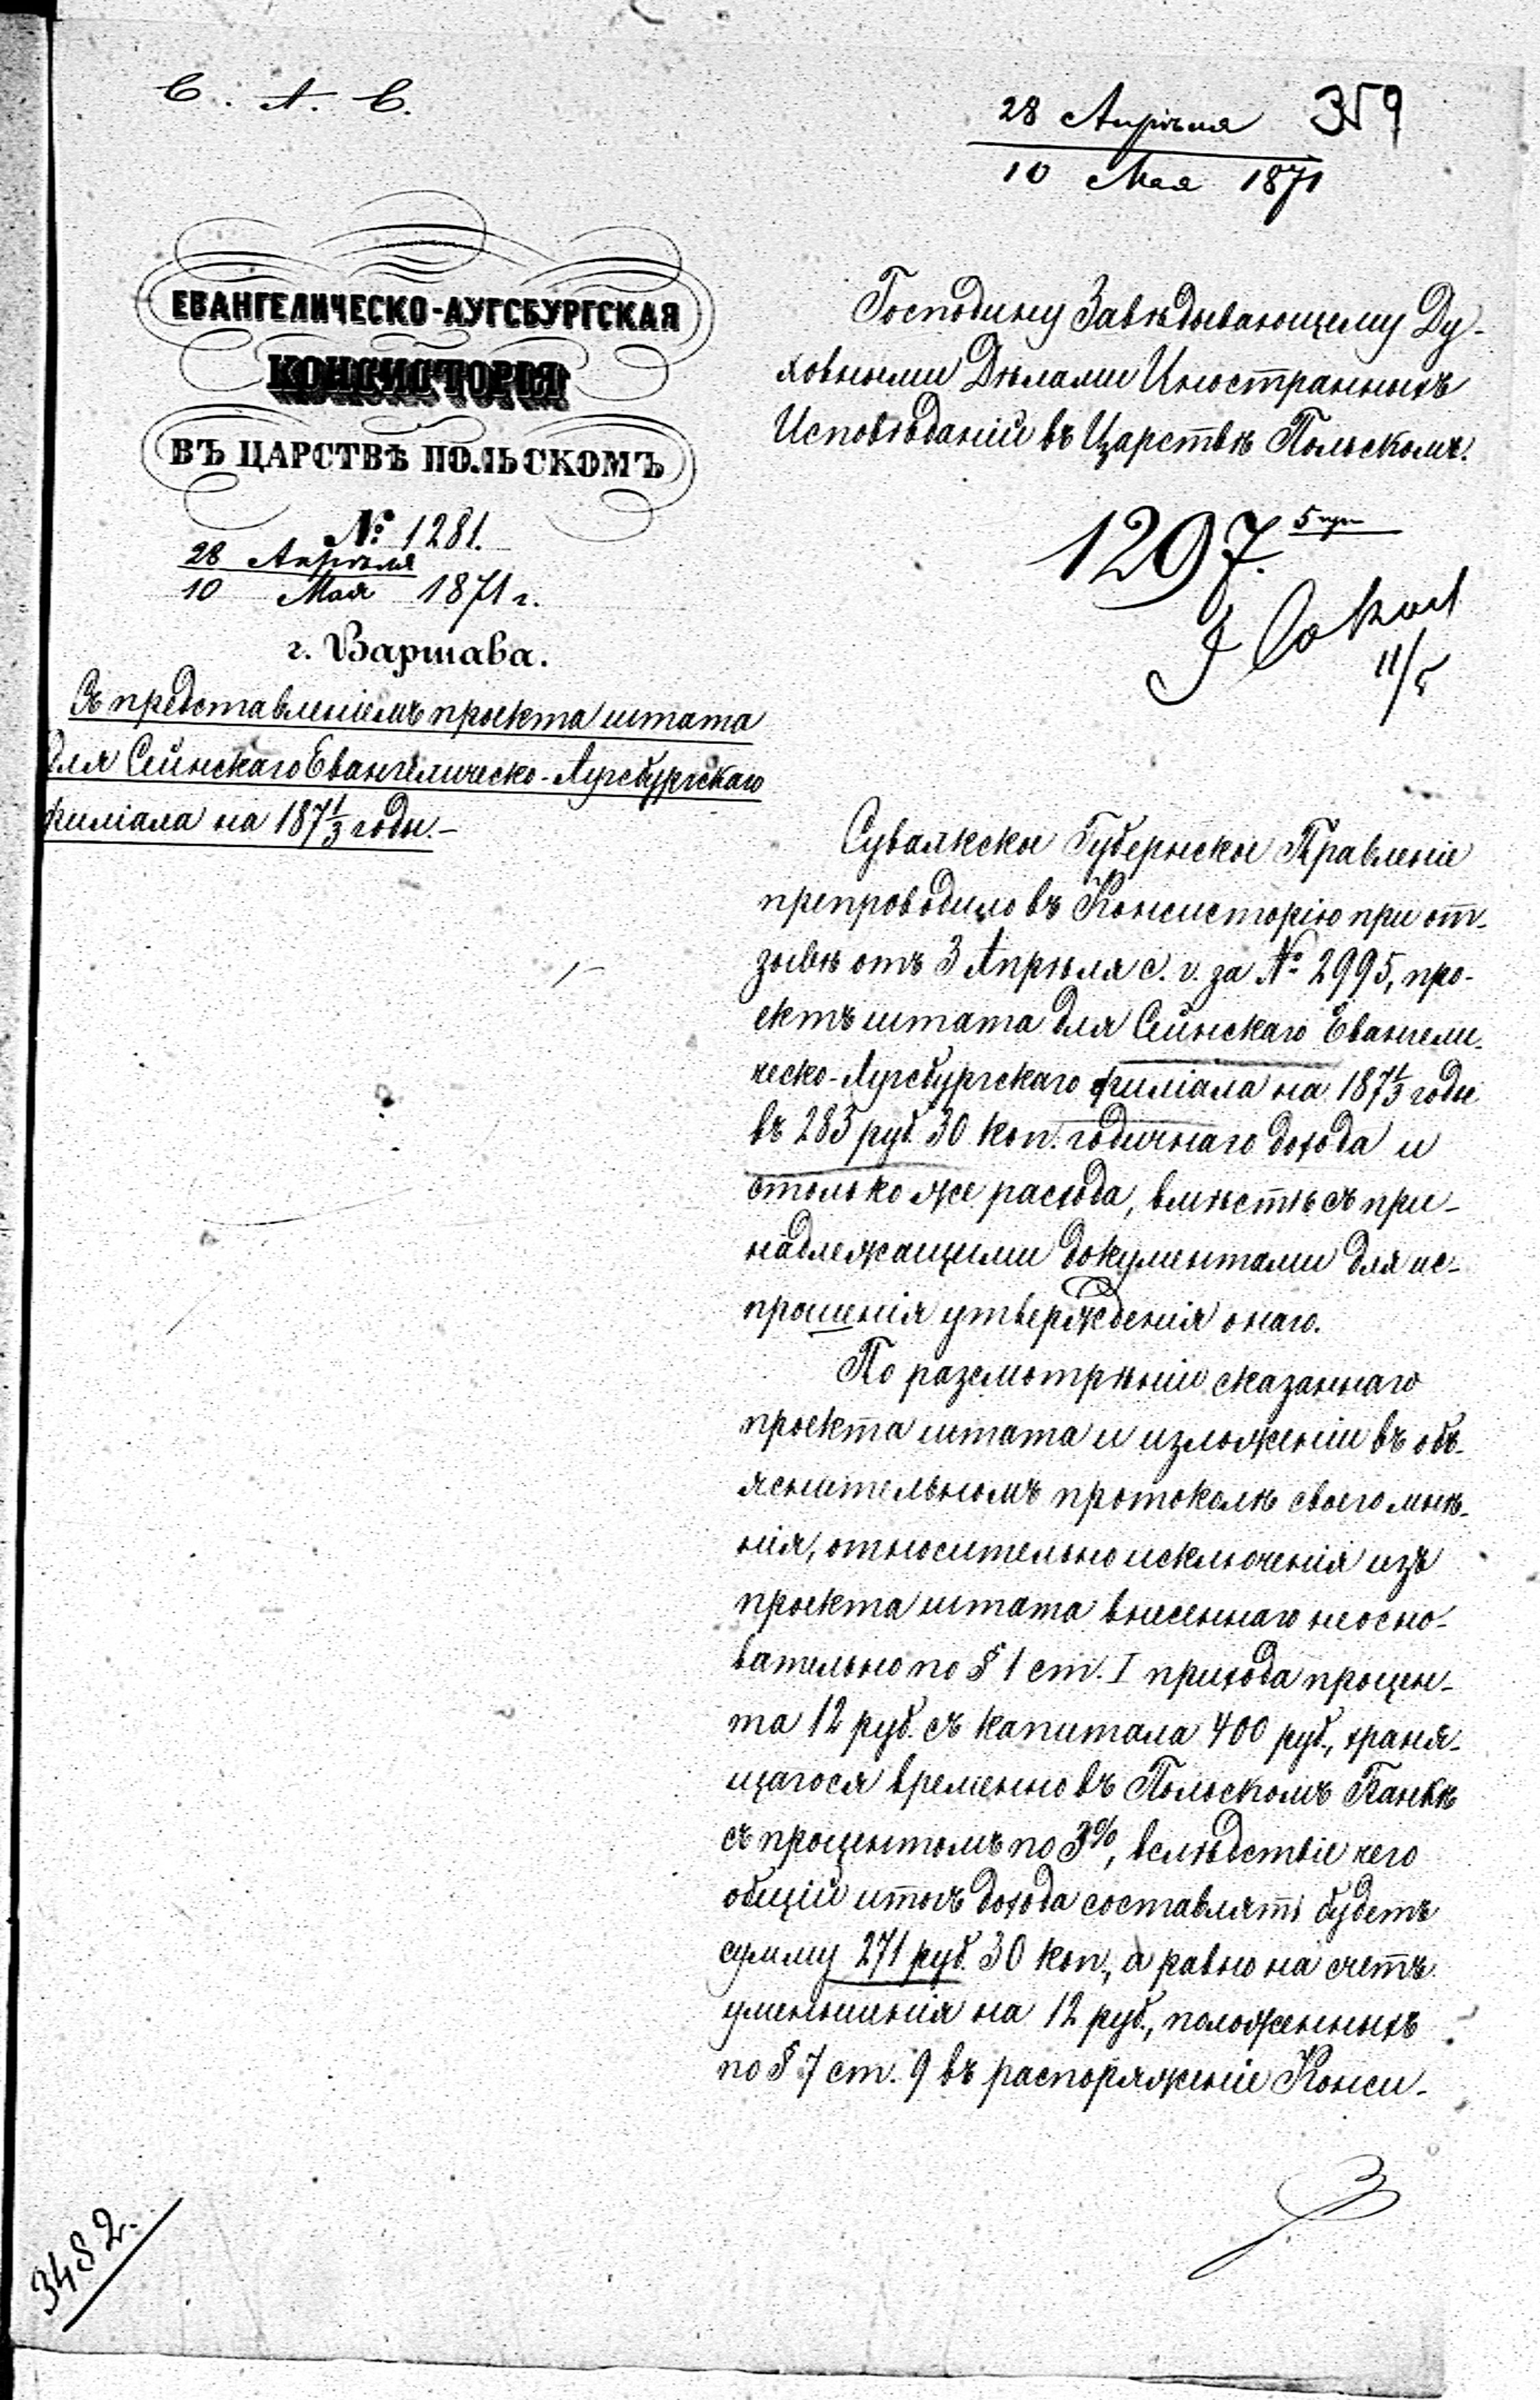 С. А. С.
28 Апрѣля 359
10 Мая 1871
ЕВАНГЕЛИЧЕСКО-АУГСБУРГСКАЯ
КОНСИСТОРІЯ
ВЪ ЦАРСТВѢ ПОЛЬСКОМЪ
№ 1281.
28 Апрѣля
10 Мая 1871 г.
г. Варшава.
Съ представленіемъ проекта штата
для Сейнскаго Евангелическо-Аугсбургскаго
филіала на 187 1/3 годы.-
Господину Завѣдывающему Ду-
ховными Дѣлами Иностранныхъ
Исповѣданій въ Царствѣ Польскомъ.
1297.
11/5
Сувалкское Губернское Правленіе
препроводило въ Консисторію при от-
зывѣ отъ 3 Апрѣля с. г. за № 2995, про-
ектъ штата для Сейнскаго Евангели-
ческо-Аугсбургскаго филіала на 187 1/3 годы
въ 283 руб. 30 коп. годичнаго дохода и
столько же расхода, вмѣстѣ съ при-
надлежащими документами для ис-
прошенія утвержденія онаго.
По разсмотрѣніи сказаннаго
проекта штата и изложеніи въ объ-
яснительномъ протоколѣ своего мнѣ-
нія, относительно исключенія изъ
проекта штата внесеннаго неосно-
вательно по § 1 ст. I прихода процен-
та 12 руб. съ капитала 400 руб., храня-
щагося временно въ Польскомъ Банкѣ
съ процентомъ по 3%, вслѣдствіе чего
общій итогъ дохода составлять будетъ
сумму 271 руб. 30 коп., а равно на счетъ
уменьшенія на 12 руб., положенныхъ
по § 7 ст. 9 въ распоряженіе Конси-
3482.